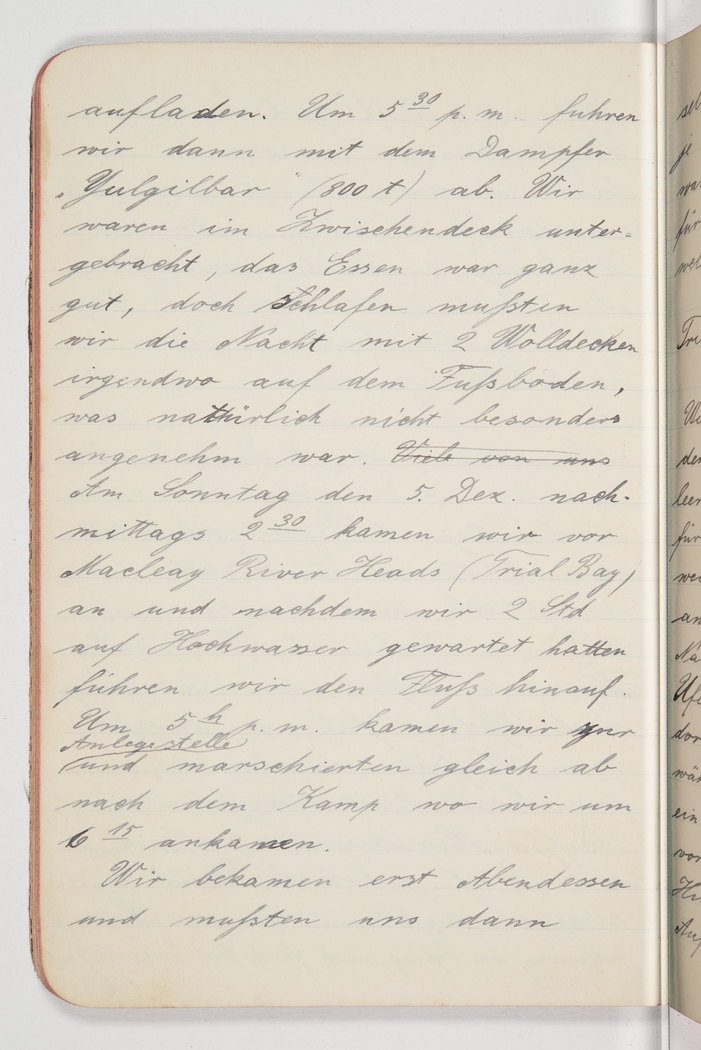 aufladen. Um 5 30 p. m. fuhren
wir dann mit dem Dampfer
„Yulgilbar" (800 t) ab. Wir
waren im Zwischendeck unter=
gebracht, das Essen war ganz
gut, doch Schlafen mußten
wir die Nacht mit 2 Wolldecken
irgendwo auf dem Fußboden,
was natürlich nicht besonders
angenehm war. Viele von uns
Am Sonntag den 5. Dez. nach-
mittags 2 30 kamen wir vor
Macleay River Heads (Trial Bay)
an und nachdem wir 2 Std
auf Hochwasser gewartet hatten
führen wir den Fluß hinauf.
Um 5 h p. m. kamen wir zur
Anlegestelle
und marschierten gleich ab
nach dem Kamp wo wir um
6 15 ankamen.
Wir bekamen erst Abendessen
und mußten uns dann